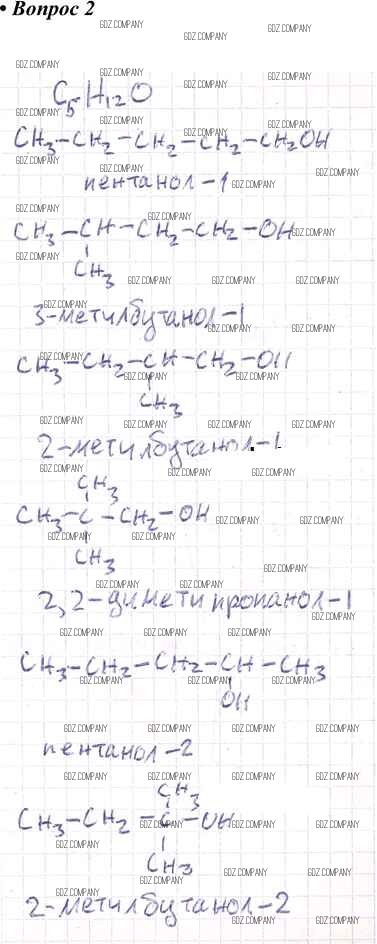 • Вопрос 2
C5H12O
CH3–CH2–CH2–CH2–CH2OH
пентанол–1
CH3–CH–CH2–CH2–OH
CH3
3-метилбутанол–1
CH3–CH2–CH–CH2–OH
CH3
2-метилбутанол-1
CH3
CH3–C–CH2–OH
CH3
2,2-димети пропанол–1
CH3–CH2–CH2–CH–CH3
OH
пентанол–2
CH3
CH3–CH2–C–OH
CH3
2-метилбутанол–2
GDZ.COMPANY